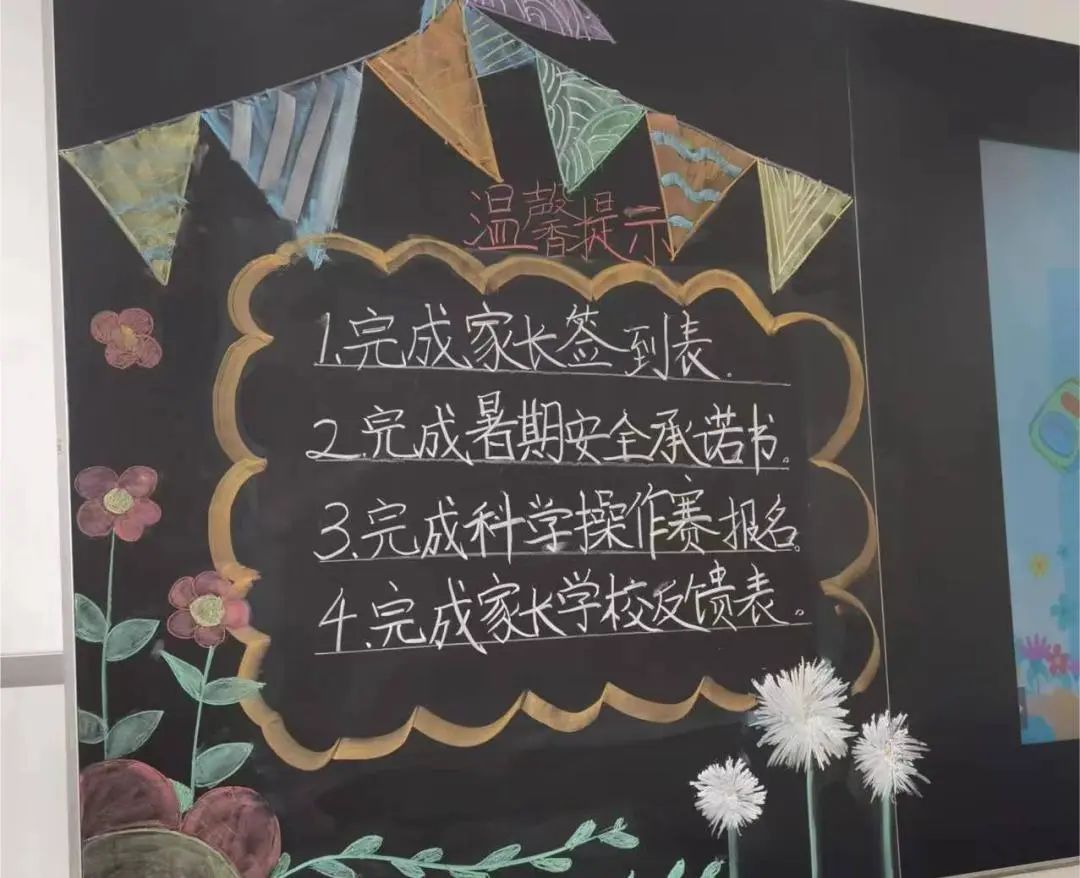 温馨提示
1.完成家长签到表。
2.完成暑期安全承诺书。
3.完成科学操作赛报名。
4.完成家长学校反馈表。